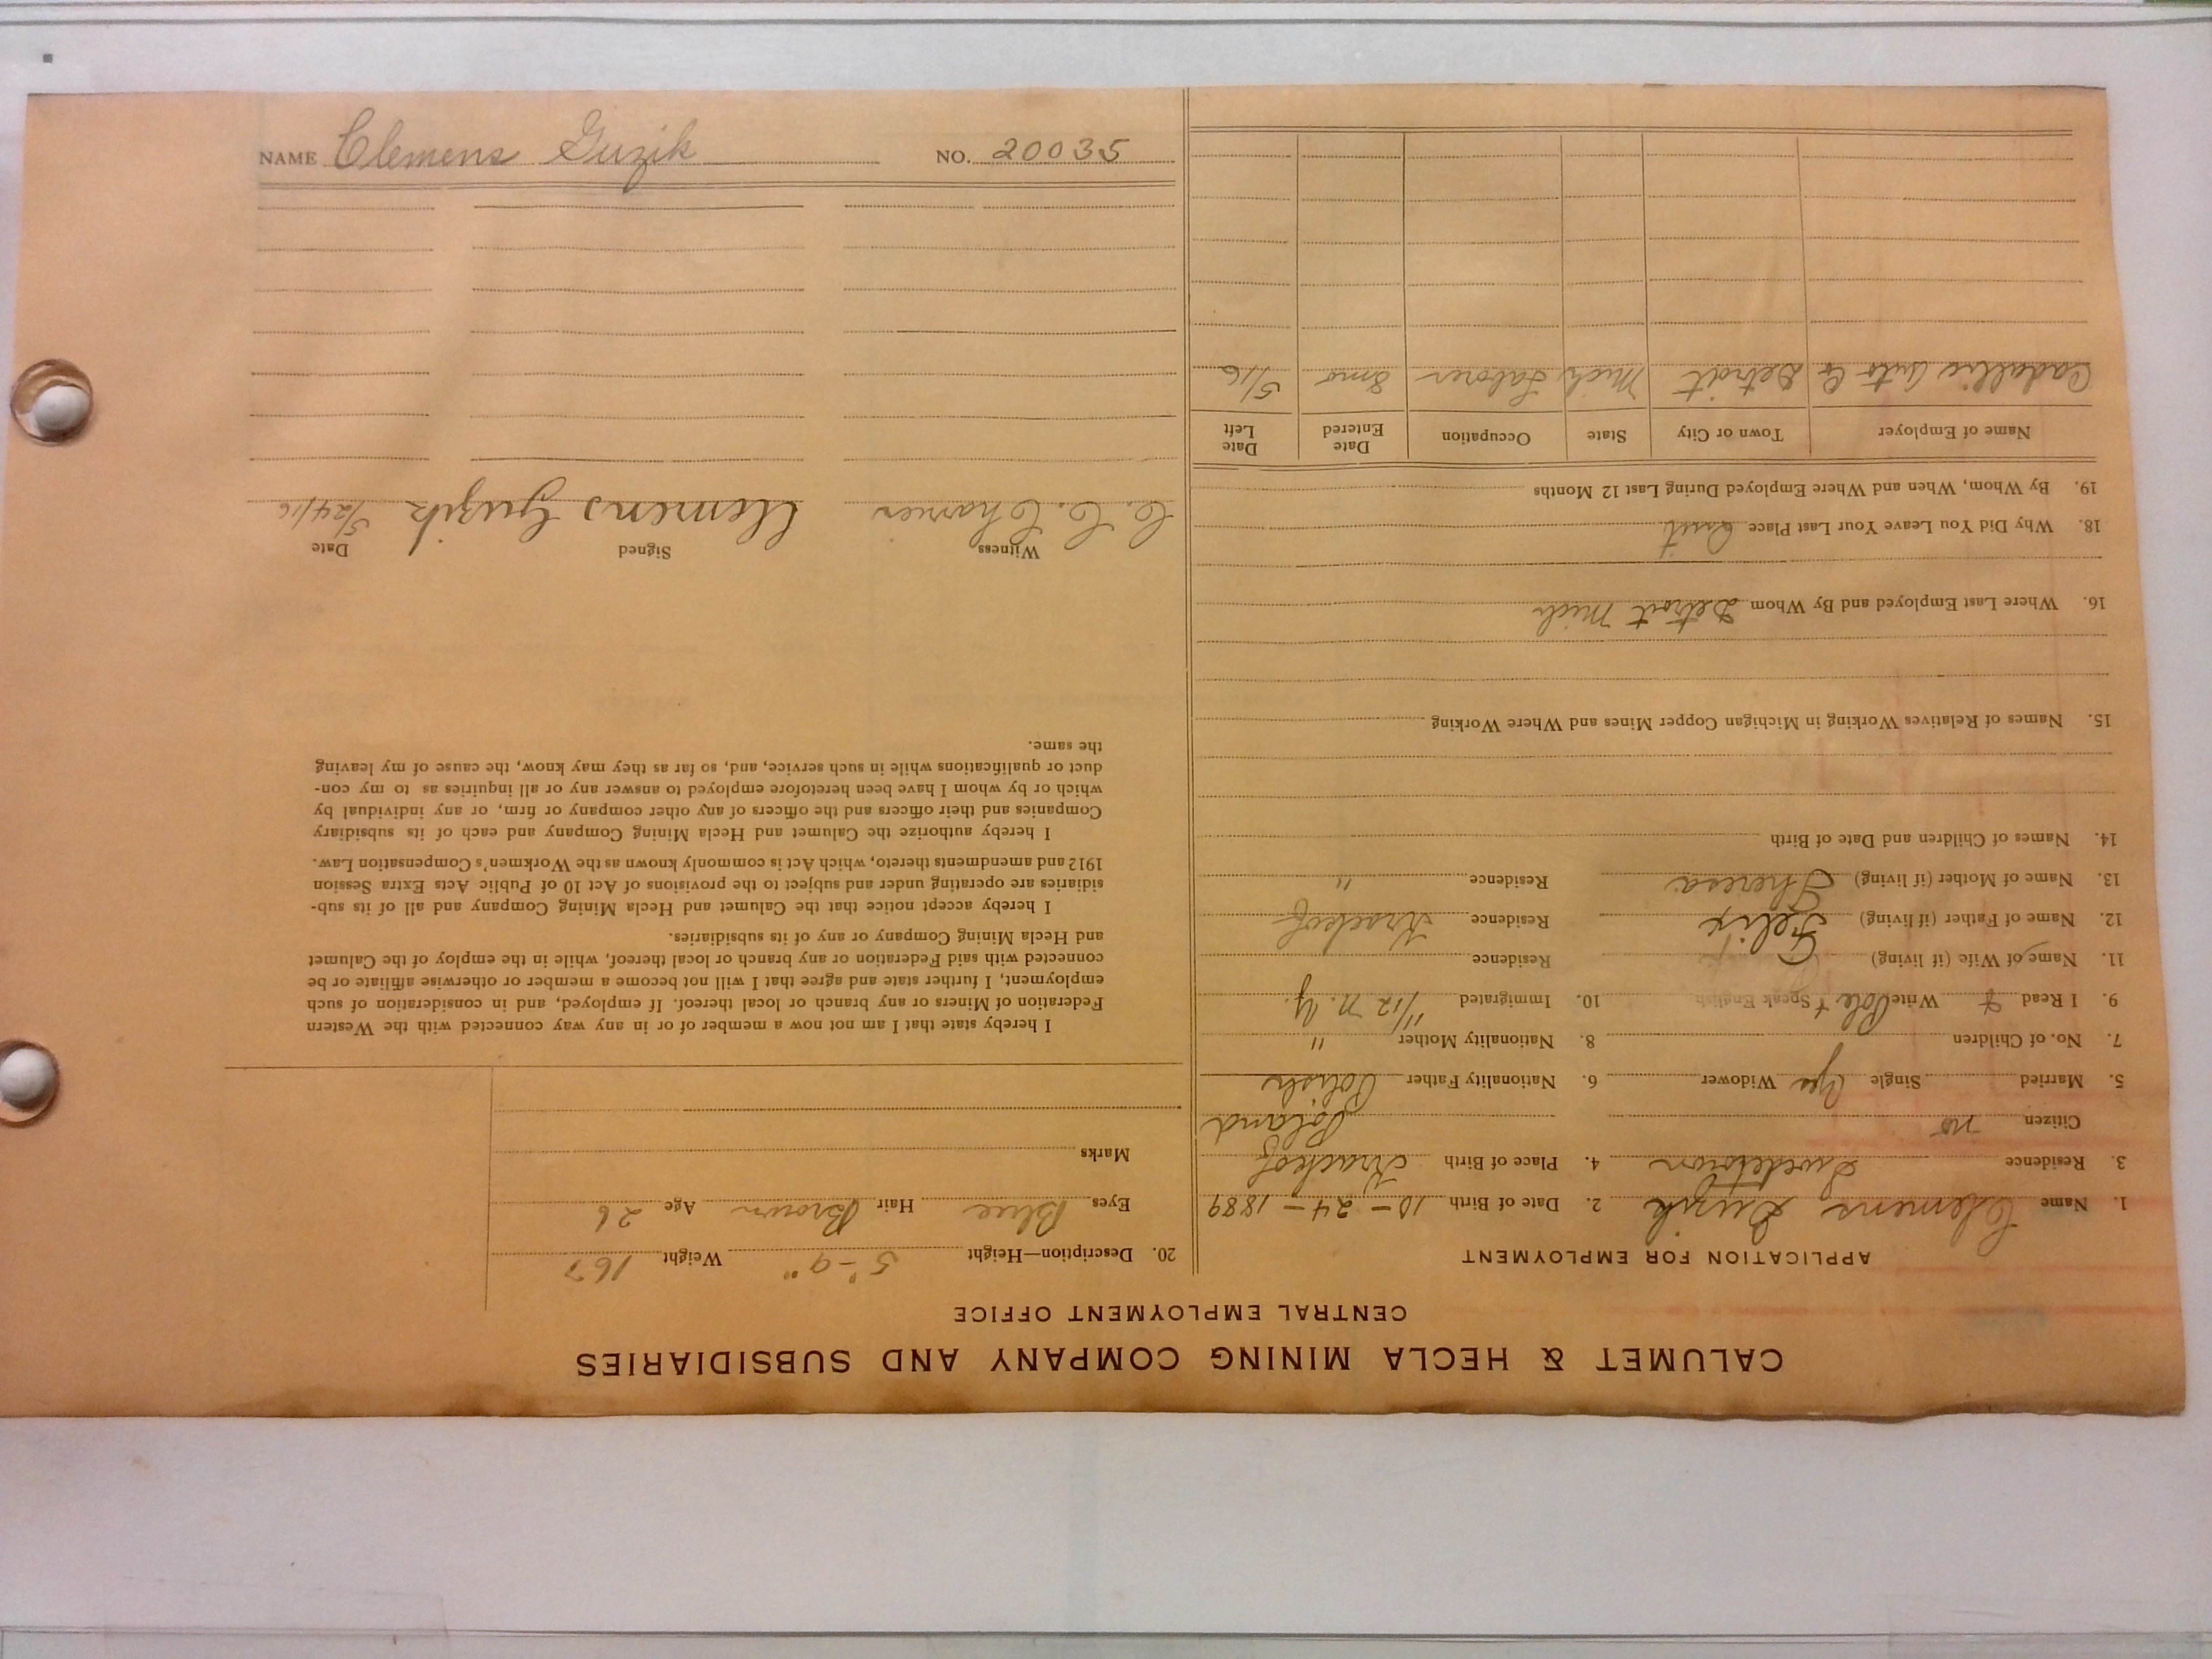 NAME Clemens Guzik NO. 20035
CALUMET & HECLA MINING COMPANY AND SUBSIDIARIES
CENTRAL EMPLOYMENT OFFICE
APPLICATION FOR EMPLOYMENT
1. Name Clemens Guzik 2. Date of Birth 10-24-1889
3. Residence Swedetown 4. Place of Birth Krackof
Citizen no Poland
5. Married Single Yes Widower 6. Nationality Father Polish
7. No. of Children 8. Nationality Mother "
9. I Read & Write Polet Speak English 10. Immigrated 11/12 N.Y.
11. Name of Wife (if living) Residence
12. Name of Father (if living) Felix Residence Krackof
13. Name of Mother (if living) Theresa Residence "
14. Names of Children and Date of Birth
15. Names of Relatives Working in Michigan Copper Mines and Where Working
16. Where Last Employed and By Whom Detroit Mich
18. Why Did You Leave Your Last Place Quit
19. By Whom, When and Where Employed During Last 12 Months
Name of Employer Town or City State Occupation Date Entered Date Left
Cadallic Auto Co Detroit Mich Laborer 8mo 5/16
20. Description—Height 5'-9" Weight 167
Eyes Blue Hair Brown Age 26
Marks
I hereby state that I am not now a member of or in any way connected with the Western
Federation of Miners or any branch or local thereof. If employed, and in consideration of such
employment, I further state and agree that I will not become a member or otherwise affiliate or be
connected with said Federation or any branch or local thereof, while in the employ of the Calumet
and Hecla Mining Company or any of its subsidiaries.
I hereby accept notice that the Calumet and Hecla Mining Company and all of its sub-
sidiaries are operating under and subject to the provisions of Act 10 of Public Acts Extra Session
1912 and amendments thereto, which Act is commonly known as the Workmen's Compensation Law.
I hereby authorize the Calumet and Hecla Mining Company and each of its subsidiary
Companies and their officers and the officers of any other company or firm, or any individual by
which or by whom I have been heretofore employed to answer any or all inquiries as to my con-
duct or qualifications while in such service, and, so far as they may know, the cause of my leaving
the same.
Witness Signed Date
C. C. Charrier Clemens Guzik 5/24/16